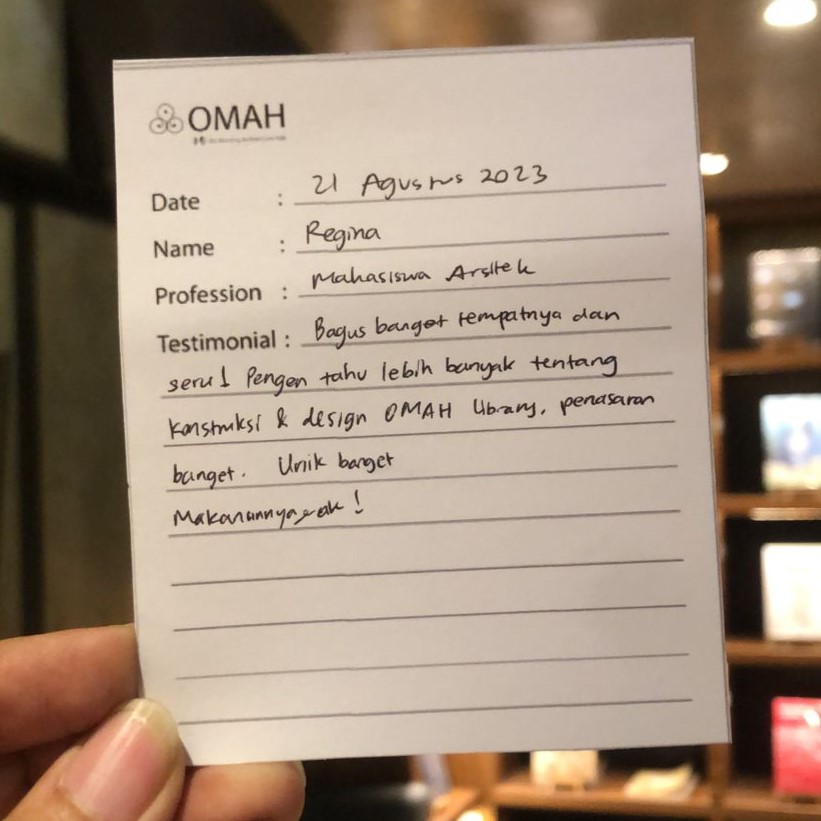 OMAH
Date : 21 Agustus 2023
Name : Regina
Profession : Mahasiswa Arsitek
Testimonial : Bagus banget tempatnya dan
seru! Pengen tahu lebih banyak tentang
konstruksi & design OMAH Library, penasaran
banget. Unik banget
Makanannya enak!